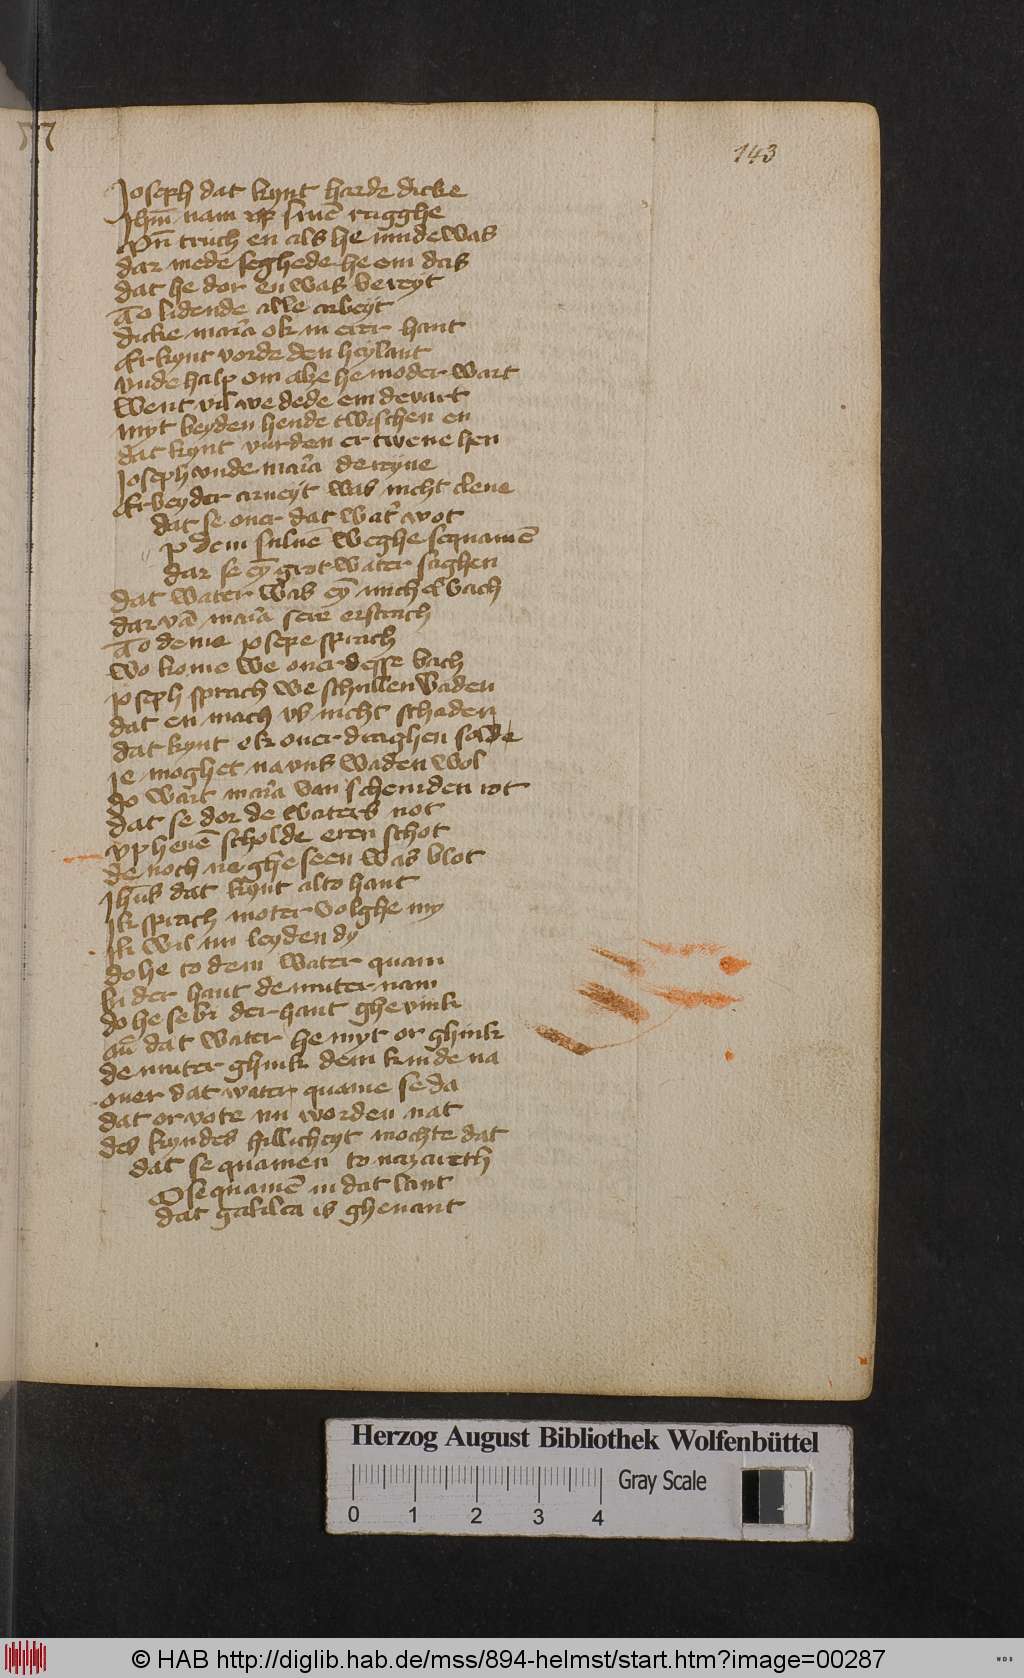 143
Joseph dat kynt harde dicke
Jhm̄ nam vp sinē rugghe
Vn̄ truch en als he mude was
dar mede seghede he em das
dat he dor en was bereyt
To lidende alle arbeyt
dicke maria ok in erer hant
Er kynt vorde den heylant
vnde halp om alze he moder wart
Went vil we dede em de vart
myt beyden hende twischen en
dat kynt vurden er twene hen
Joseph vnde maria de reyne
Er beyder arueyt was nicht clene
dat se ouer dat wat' wot
p dem suluē weghe se quamē
dar se eȳ grot water saghen
dat water was eȳ michel bach
dar vā maria sere erscrach
To deme josepe sprach
wo kome we ouer desse bach
joseph sprach we schullen waden
dat en mach vs nicht schaden
dat kynt ok ouer draghen sal de
je moghet na vns waden wol
do wart maria van schemden rot
dat se dor de waters not
vp heuē scholde eren schot
de noch ne gheseen was blot
Jhūs dat kynt alto hant
Jk sprach moter volghe my
Jk wil nu leyden dy
do he to dem water quam
bi der hant de muter nam
do he se bi der hant ghevink
an̄ dat water he myt or ghink
de muter ghink dem kinde na
ouer dat water quame se da
dat or vote nu worden nat
des kyndes hillicheyt mochte dat
dat se quamen to nazareth
O se quamē in dat lant
dat galilea is ghenant
Herzog August Bibliothek Wolfenbüttel
Gray Scale
0 1 2 3 4
© HAB http://diglib.hab.de/mss/894-helmst/start.htm?image=00287